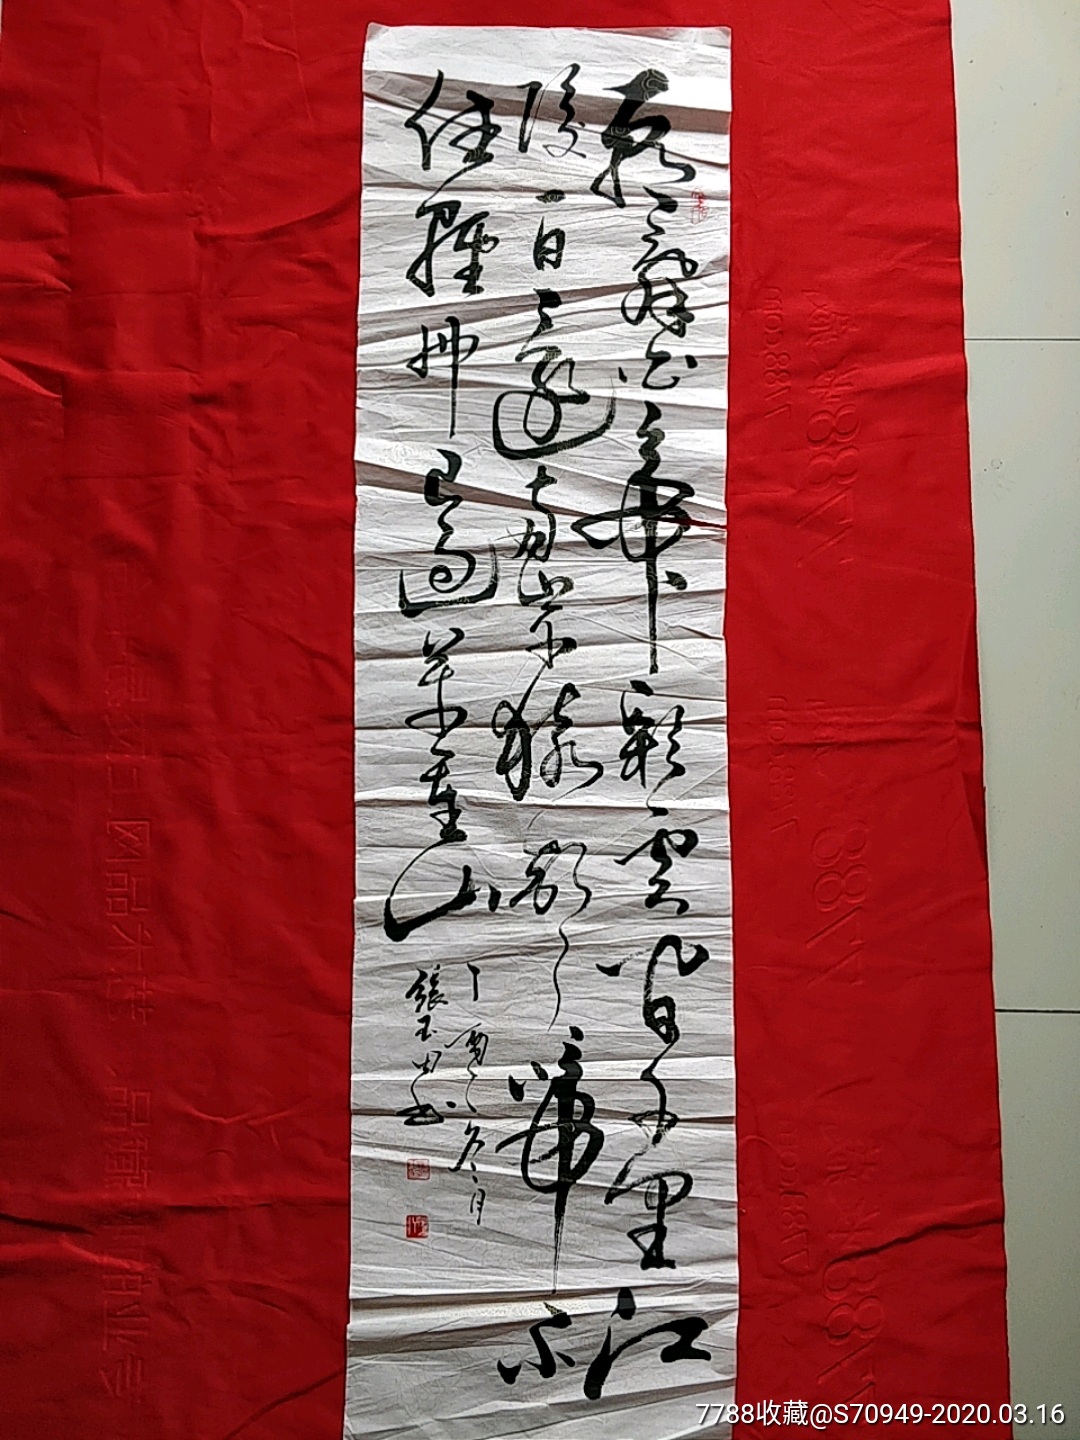 朝辭白帝彩雲間千里江
陵一日還两岸猿聲啼不
住輕舟已過萬重山
丁酉之冬月
張玉田书
7788收藏@S70949-2020.03.16